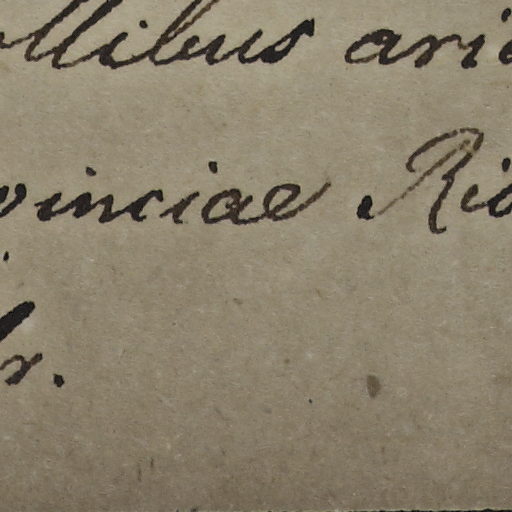 ollibus ari
vinciae Rio
r.